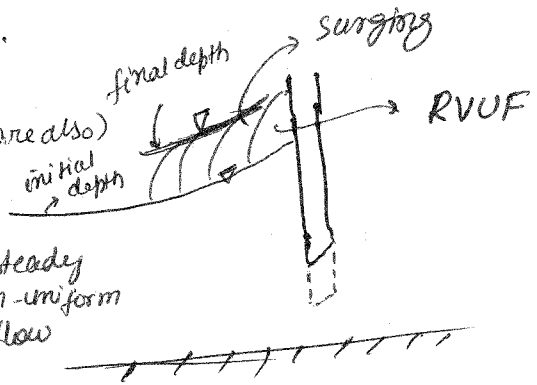 surging
final depth
RVUF
are also)
initial
depth
steady
n-uniform
flow